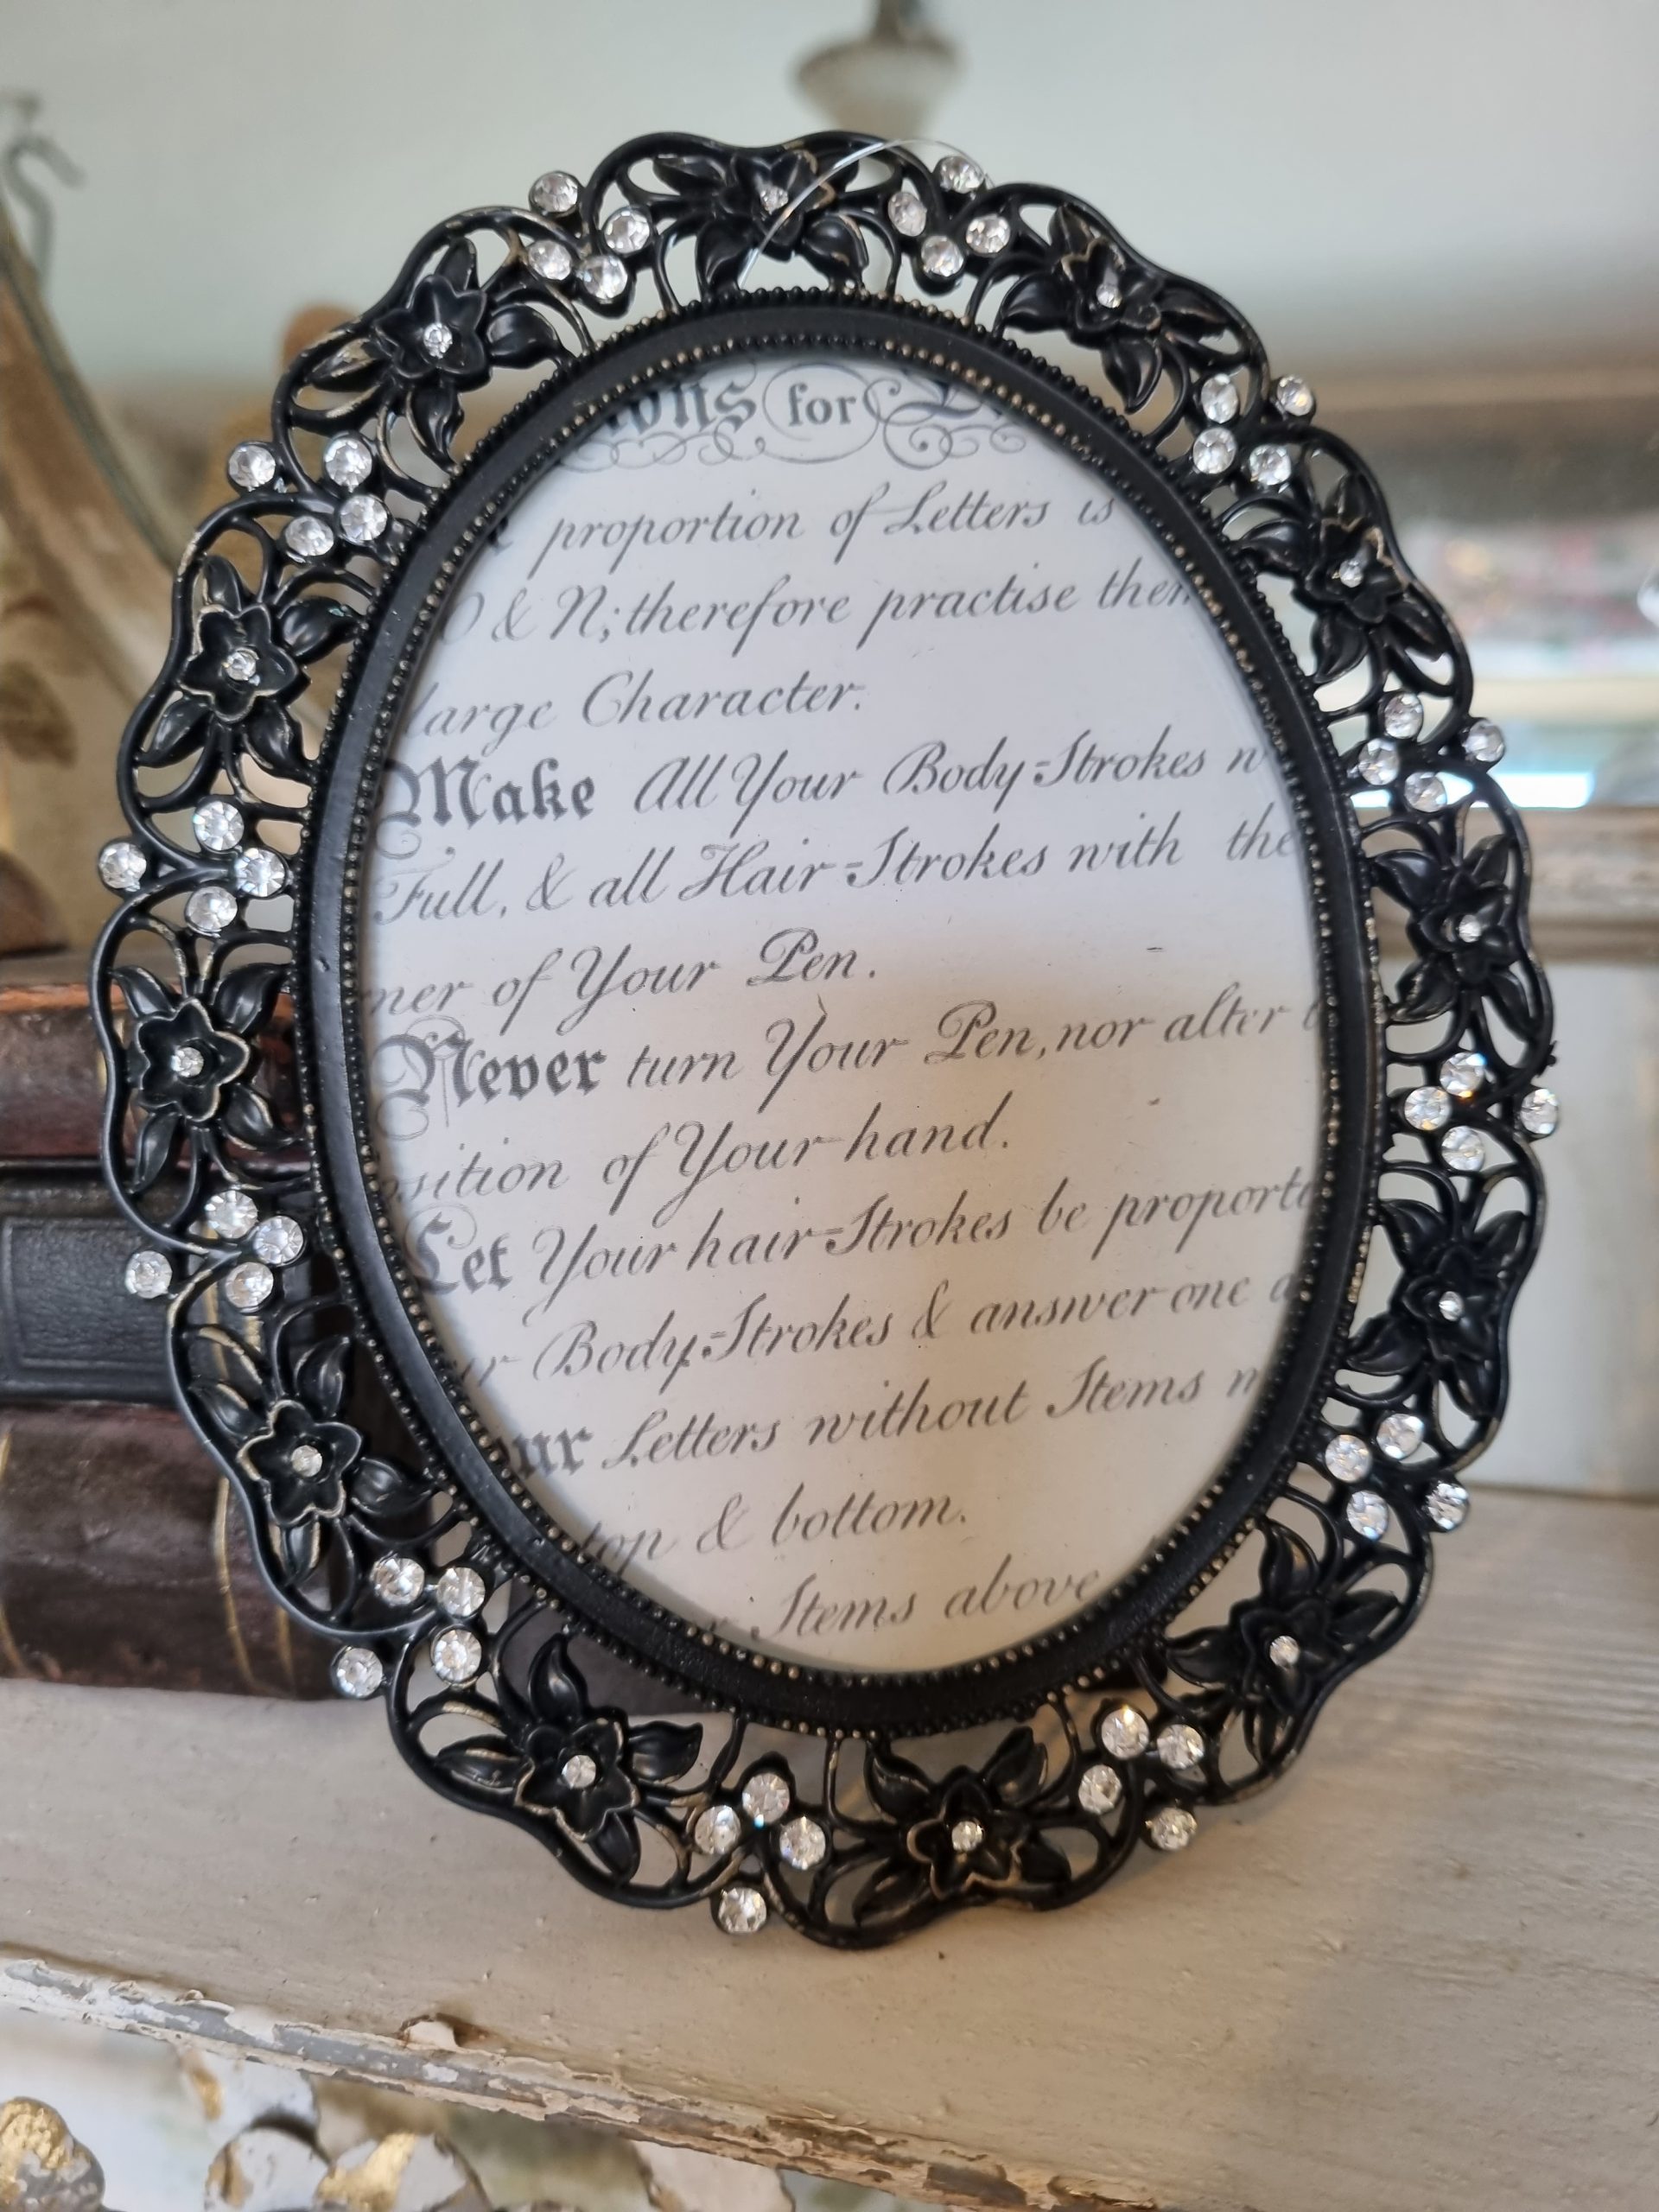 for
proportion of Letters is
O & N; therefore practise them
large Character.
Make All Your Body-Strokes w
Full, & all Hair-Strokes with the
ner of Your Pen.
Never turn Your Pen, nor alter
sition of Your hand.
Let Your hair-Strokes be proporti
ur Body-Strokes & answer one a
ur Letters without Stems
top & bottom.
Stems above